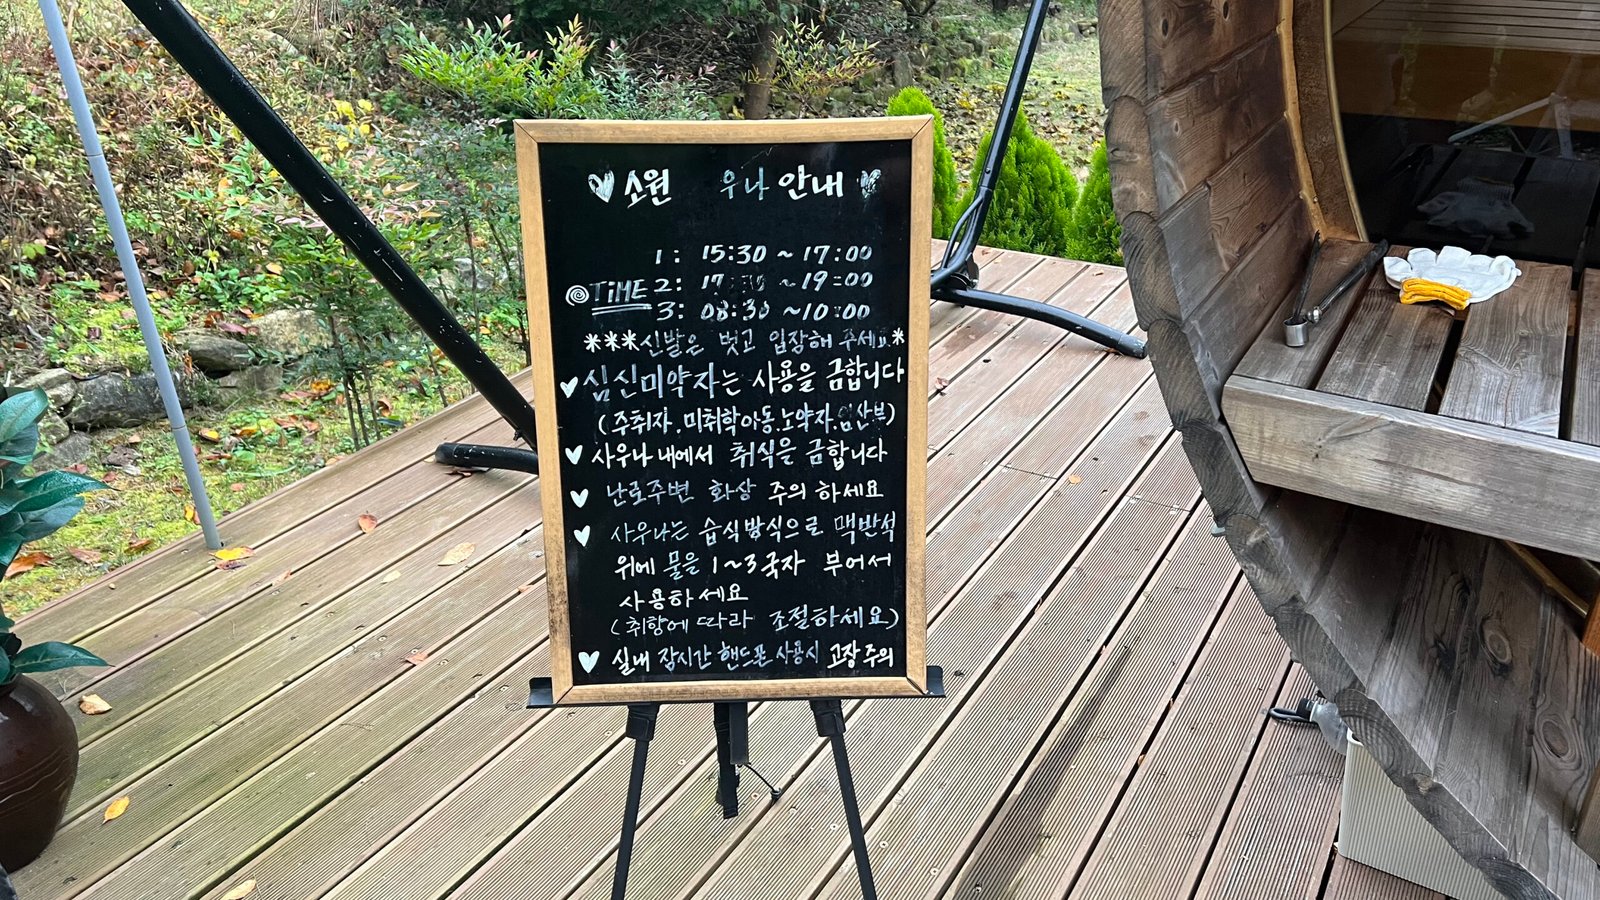 소원 우나 안내
1: 15:30 ~ 17:00
TIME 2: 17:30 ~ 19:00
3: 08:30 ~ 10:00
***신발은 벗고 입장해 주세요*
심신미약자는 사용을 금합니다
(주취자.미취학아동.노약자.임산부)
사우나 내에서 취식을 금합니다
난로주변 화상 주의 하세요
사우나는 습식방식으로 맥반석
위에 물을 1~3국자 부어서
사용하세요
(취향에 따라 조절하세요)
실내 잠시간 핸드폰 사용시 고장 주의